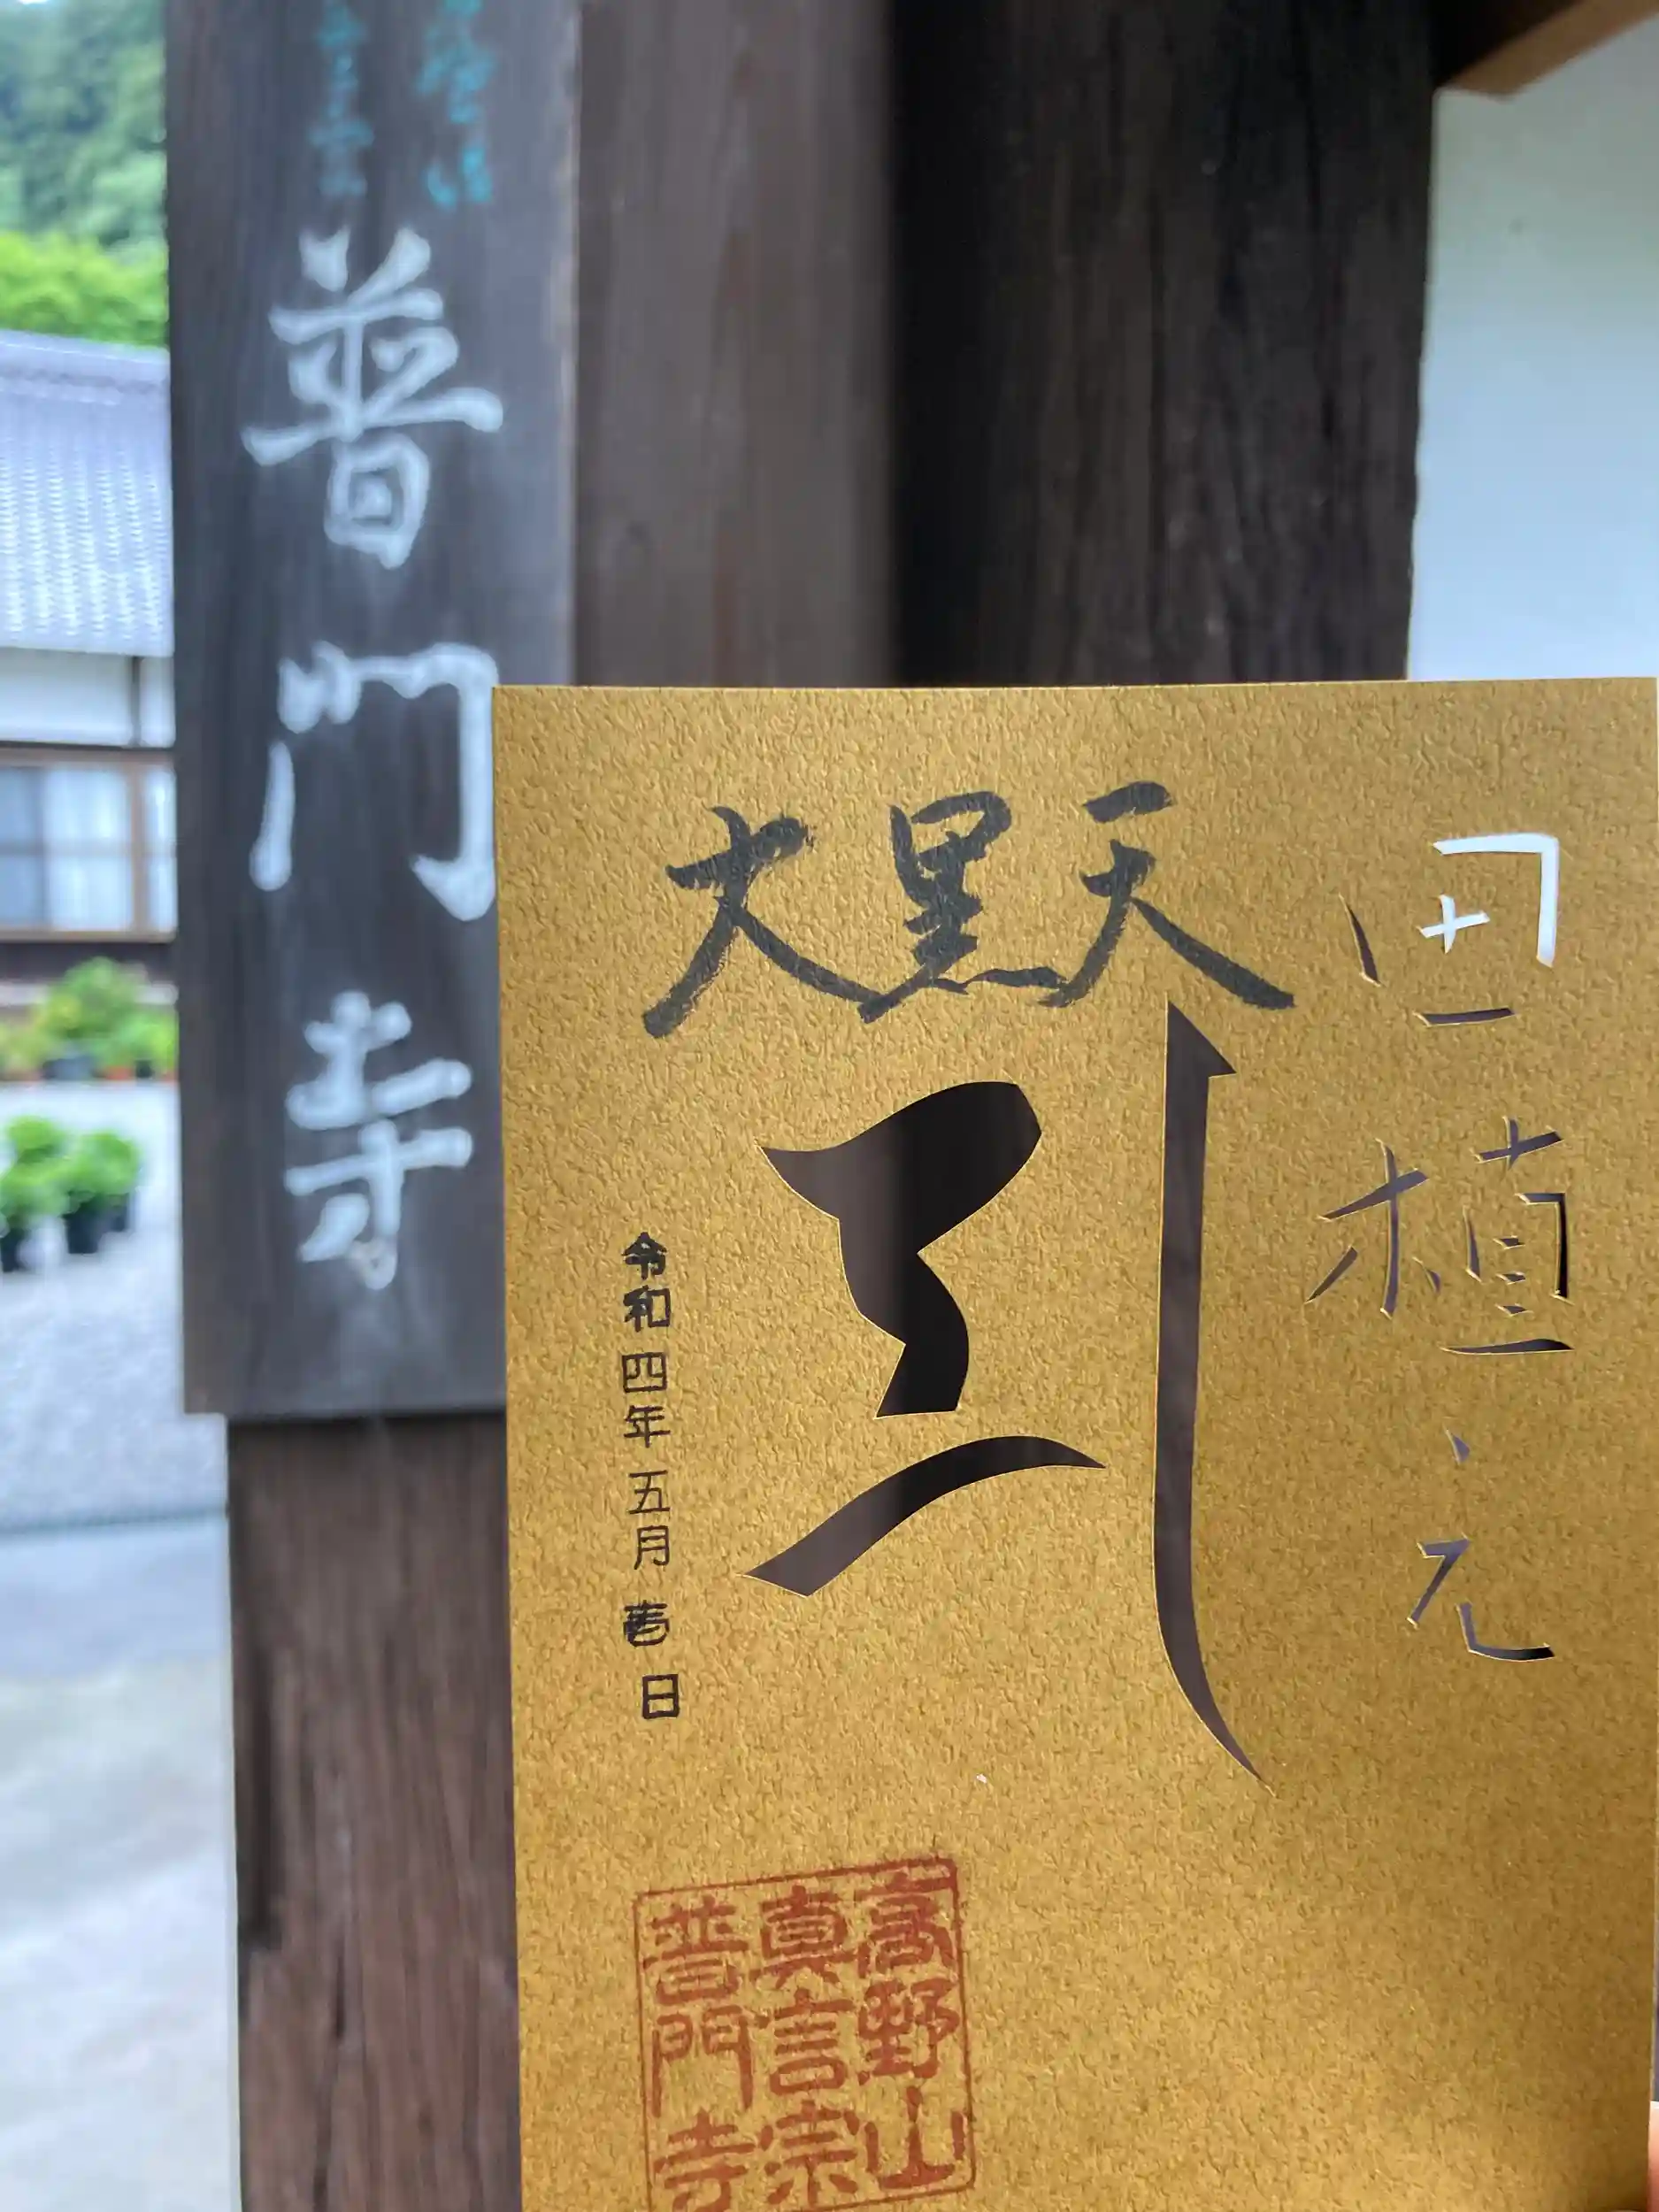 普門寺
大黒天
田植え
令和四年五月壱日
高野山
真言宗
普門寺